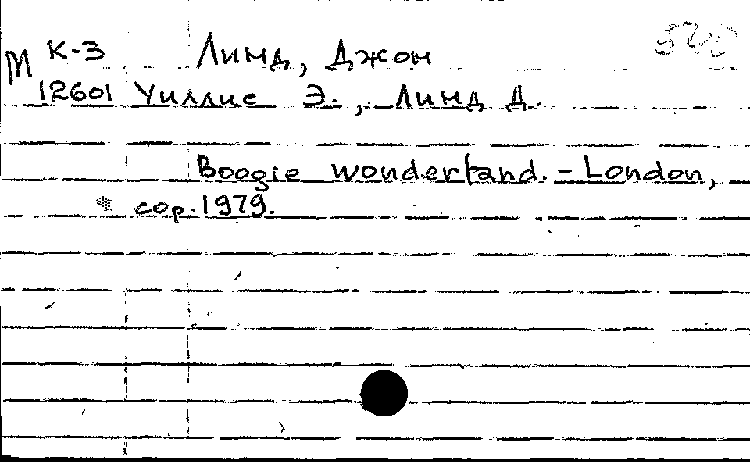 М К-3 Линд, Джон
12601 Уиллис Э., Линд Д.
Boogie wonderland. - London,
cop. 1979.